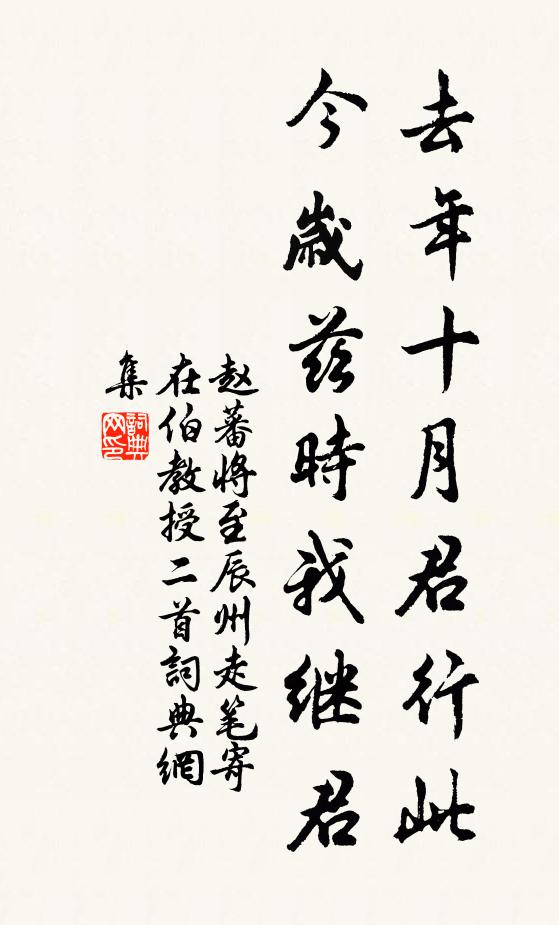 去年十月君行此
今歲茲時我继君
赵蕃將至辰州走笔寄
在伯教授二首詞典網
集
詞典
网印